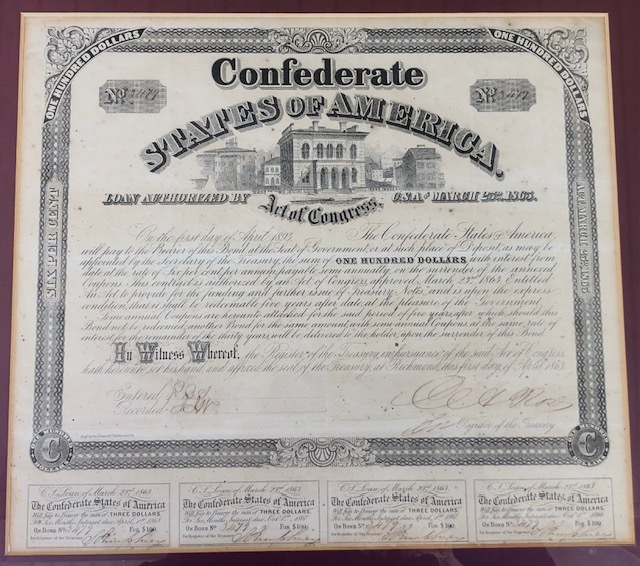 ONE HUNDRED DOLLARS
ONE HUNDRED DOLLARS
Confederate
No
No
STATES OF AMERICA.
LOAN AUTHORIZED BY
C.S.A. of MARCH 23RD. 1863.
Act of Congress,
SIX PER CENT
On the first day of April 1893, The Confederate States of America,
will pay to the Bearer of this Bond, at the Seat of Government, or at such place of Deposit, as may be
appointed by the Secretary of the Treasury, the sum of ONE HUNDRED DOLLARS with interest from
date at the rate of Six per cent per annum, payable semi-annually, on the surrender of the annexed
Coupons. This contract is authorized by an Act of Congress, approved March 23rd 1863, Entitled
An Act to provide for the funding and further issue of Treasury Notes, and is upon the express
condition, that it shall be redeemable five years after date at the pleasure of the Government.
Semi annual Coupons are hereunto attached for the said period of five years, after which, should this
Bond not be redeemed, another Bond for the same amount, with semi annual Coupons at the same rate of
interest for the remainder of the thirty years will be delivered to the holder, upon the surrender of this Bond.
In Witness Whereof, the Register of the Treasury, in pursuance of the said Act of Congress,
hath hereunto set his hand, and affixed the seal of the Treasury, at Richmond, this first day of April 1863.
Entered
Recorded
Register of the Treasury
C
C
C.S. Loan of March 23rd 1863.
The Confederate States of America
Will pay to Bearer the sum of THREE DOLLARS.
For Six Months Interest due April 1st 1868
ON BOND No. For $100.
For Register of the Treasury
C.S. Loan of March 23rd 1863.
The Confederate States of America
Will pay to Bearer the sum of THREE DOLLARS.
For Six Months Interest due Oct. 1st 1867
ON BOND No. For $100.
For Register of the Treasury
C.S. Loan of March 23rd 1863.
The Confederate States of America
Will pay to Bearer the sum of THREE DOLLARS.
For Six Months Interest due April 1st 1867
ON BOND No. For $100.
For Register of the Treasury
C.S. Loan of March 23rd 1863.
The Confederate States of America
Will pay to Bearer the sum of THREE DOLLARS.
For Six Months Interest due Oct. 1st 1866
ON BOND No. For $100.
For Register of the Treasury